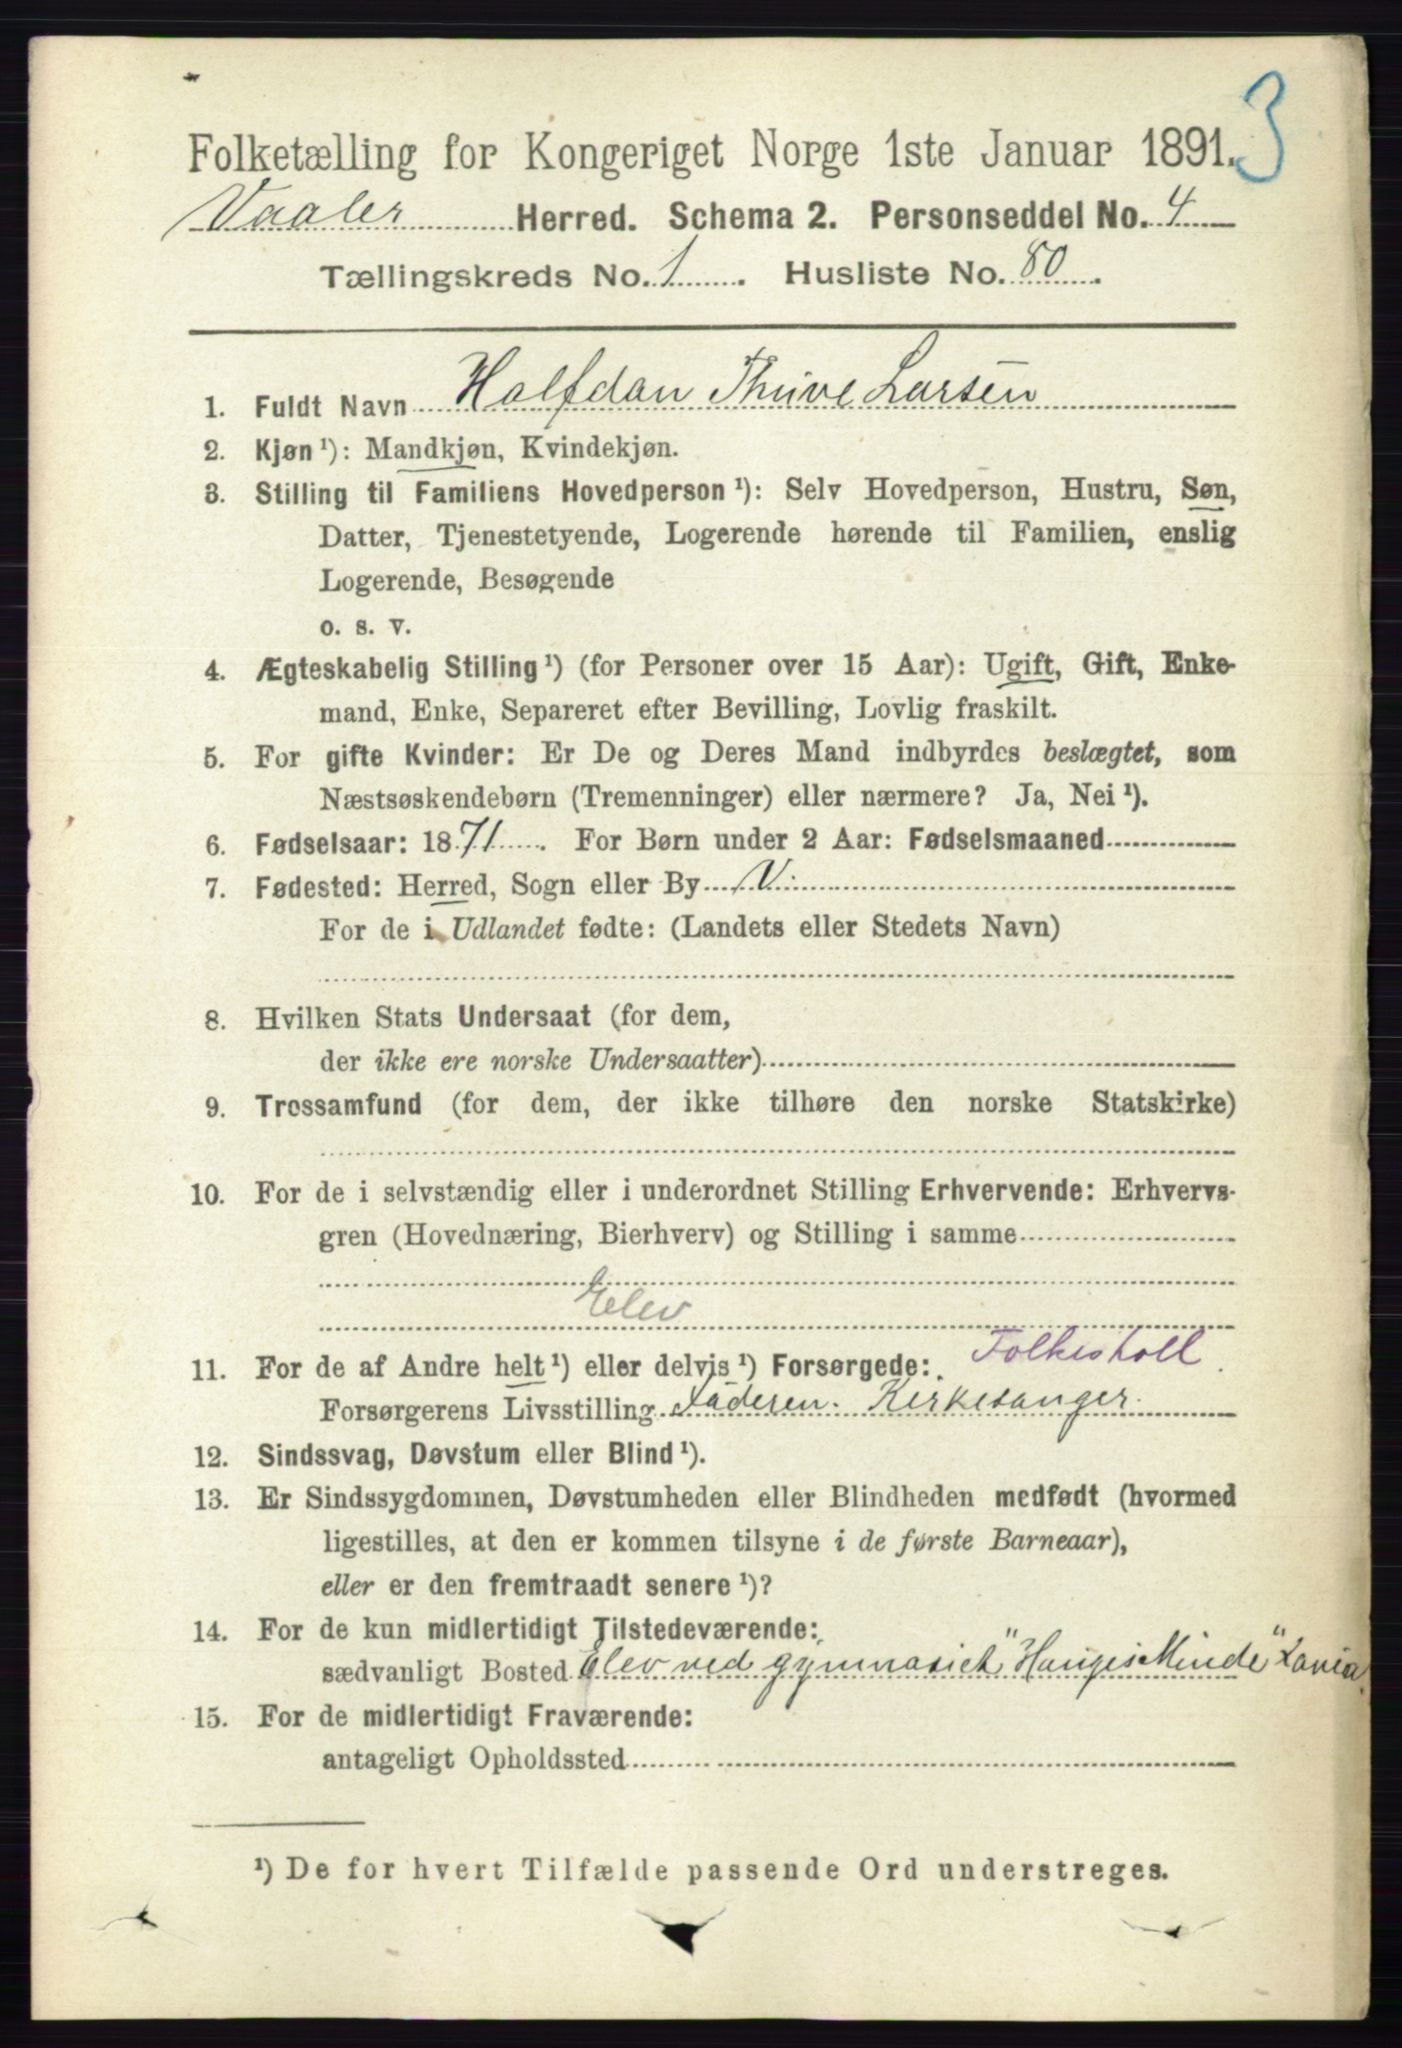 3
Folketælling for Kongeriget Norge 1ste Januar 1891.
Vaaler Herred. Schema 2. Personseddel No. 4
Tællingskreds No. 1. Husliste No. 80.
1. Fuldt Navn Halfdan Thive Larsen
2. Kjøn ¹): Mandkjøn, Kvindekjøn.
3. Stilling til Familiens Hovedperson ¹): Selv Hovedperson, Hustru, Søn,
Datter, Tjenestetyende, Logerende hørende til Familien, enslig
Logerende, Besøgende
o. s. v.
4. Ægteskabelig Stilling ¹) (for Personer over 15 Aar): Ugift, Gift, Enke-
mand, Enke, Separeret efter Bevilling, Lovlig fraskilt.
5. For gifte Kvinder: Er De og Deres Mand indbyrdes beslægtet, som
Næstsøskendebørn (Tremenninger) eller nærmere? Ja, Nei ¹).
6. Fødselsaar: 1871. For Børn under 2 Aar: Fødselsmaaned
7. Fødested: Herred, Sogn eller By V.
For de i Udlandet fødte: (Landets eller Stedets Navn)
8. Hvilken Stats Undersaat (for dem,
der ikke ere norske Undersaatter)
9. Trossamfund (for dem, der ikke tilhøre den norske Statskirke)
10. For de i selvstændig eller i underordnet Stilling Erhvervende: Erhvervs-
gren (Hovednæring, Bierhverv) og Stilling i samme
Elev
11. For de af Andre helt ¹) eller delvis ¹) Forsørgede: Folkeskoll.
Forsørgerens Livsstilling Faderen. Kirkesanger.
12. Sindssvag, Døvstum eller Blind ¹).
13. Er Sindssygdommen, Døvstumheden eller Blindheden medfødt (hvormed
ligestilles, at den er kommen tilsyne i de første Barneaar),
eller er den fremtraadt senere ¹)?
14. For de kun midlertidigt Tilstedeværende:
sædvanligt Bosted Elev ved gymnasiet "Hauges Minde" Xania.
15. For de midlertidigt Fraværende:
antageligt Opholdssted
¹) De for hvert Tilfælde passende Ord understreges.